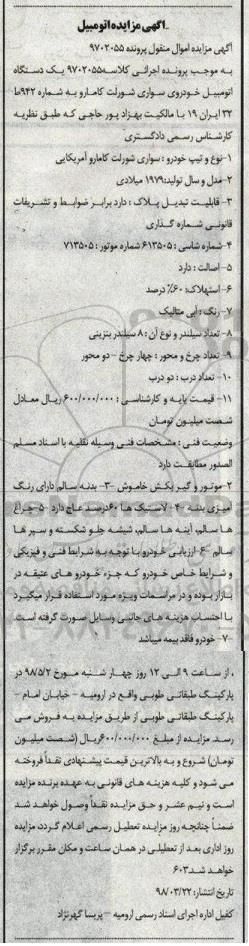 آگهی مزایده اتومبیل
آگهی مزایده اموال منقول پرونده ۹۷۰۲۰۵۵
به موجب پرونده اجرائی کلاسه۹۷۰۲۰۵۵ یک دستگاه
اتومبیل خودروی سواری شورلت کامارو به شماره ۹۴۲ط
۳۲ ایران ۱۹ با مالکیت بهزاد پور حاجی که طبق نظریه
کارشناس رسمی دادگستری
۱-نوع و تیپ خودرو : سواری شورلت کامارو آمریکایی
۲-مدل و سال تولید:۱۹۷۹ میلادی
۳- قابلیت تبدیل پلاک : دارد برابر ضوابط و تشریفات
قانونی شماره گذاری
۴-شماره شاسی : ۶۱۳۵۰۵ شماره موتور : ۷۱۳۵۰۵
۵- اصالت : دارد
۶- استهلاک: ۶۰٪ درصد
۷- رنگ : آبی متالیک
۸- تعداد سیلندر و نوع آن : ۸ سیلندر بنزینی
۹- تعداد چرخ و محور : چهار چرخ - دو محور
۱۰- تعداد درب : دو درب
۱۱- قیمت پایه و کارشناسی : ۶۰۰/۰۰۰/۰۰۰ ریال معادل
شصت میلیون تومان
وضعیت فنی : مشخصات فنی وسیله نقلیه با اسناد مسلم
الصدور مطابقت دارد
۲-موتور و گیربکس خاموش -۳- بدنه سالم دارای رنگ
آمیزی بدنه -۴- لاستیک ها ۶۰درصد عاج دارد -۵-چراغ
ها سالم، آینه ها سالم، شیشه جلو شکسته و سپر ها
سالم -۶-ارزیابی خودرو با توجه به شرایط فنی و فیزیکی
و شرایط خاص خودرو که جزء خودرو های عتیقه در
بازار بوده و در مراسمات ویژه مورد استفاده قرار میگیرد
با احتساب هزینه های جانبی وسایل صورت گرفته است
۷- خودرو فاقد بیمه میباشد
، از ساعت ۹ الی ۱۲ روز چهار شنبه مورخ ۹۸/۵/۲ در
پارکینگ طبقاتی طوبی واقع در ارومیه - خیابان امام -
پارکینگ طبقاتی طوبی از طریق مزایده به فروش می
رسد. مزایده از مبلغ ۶۰۰/۰۰۰/۰۰۰ریال (شصت میلیون
تومان) شروع و به بالاترین قیمت پیشنهادی نقداً فروخته
می شود و کلیه هزینه های قانونی به عهده برنده مزایده
است و نیم عشر و حق مزایده نقداً وصول خواهد شد
ضمناً چنانچه روز مزایده تعطیل رسمی اعلام گردد، مزایده
روز اداری بعد از تعطیلی در همان ساعت و مکان مقرر برگزار
خواهد شد.۶۰۳
تاریخ انتشار: ۹۸/۰۳/۲۲
کفیل اداره اجرای اسناد رسمی ارومیه – پریسا گهرنژاد